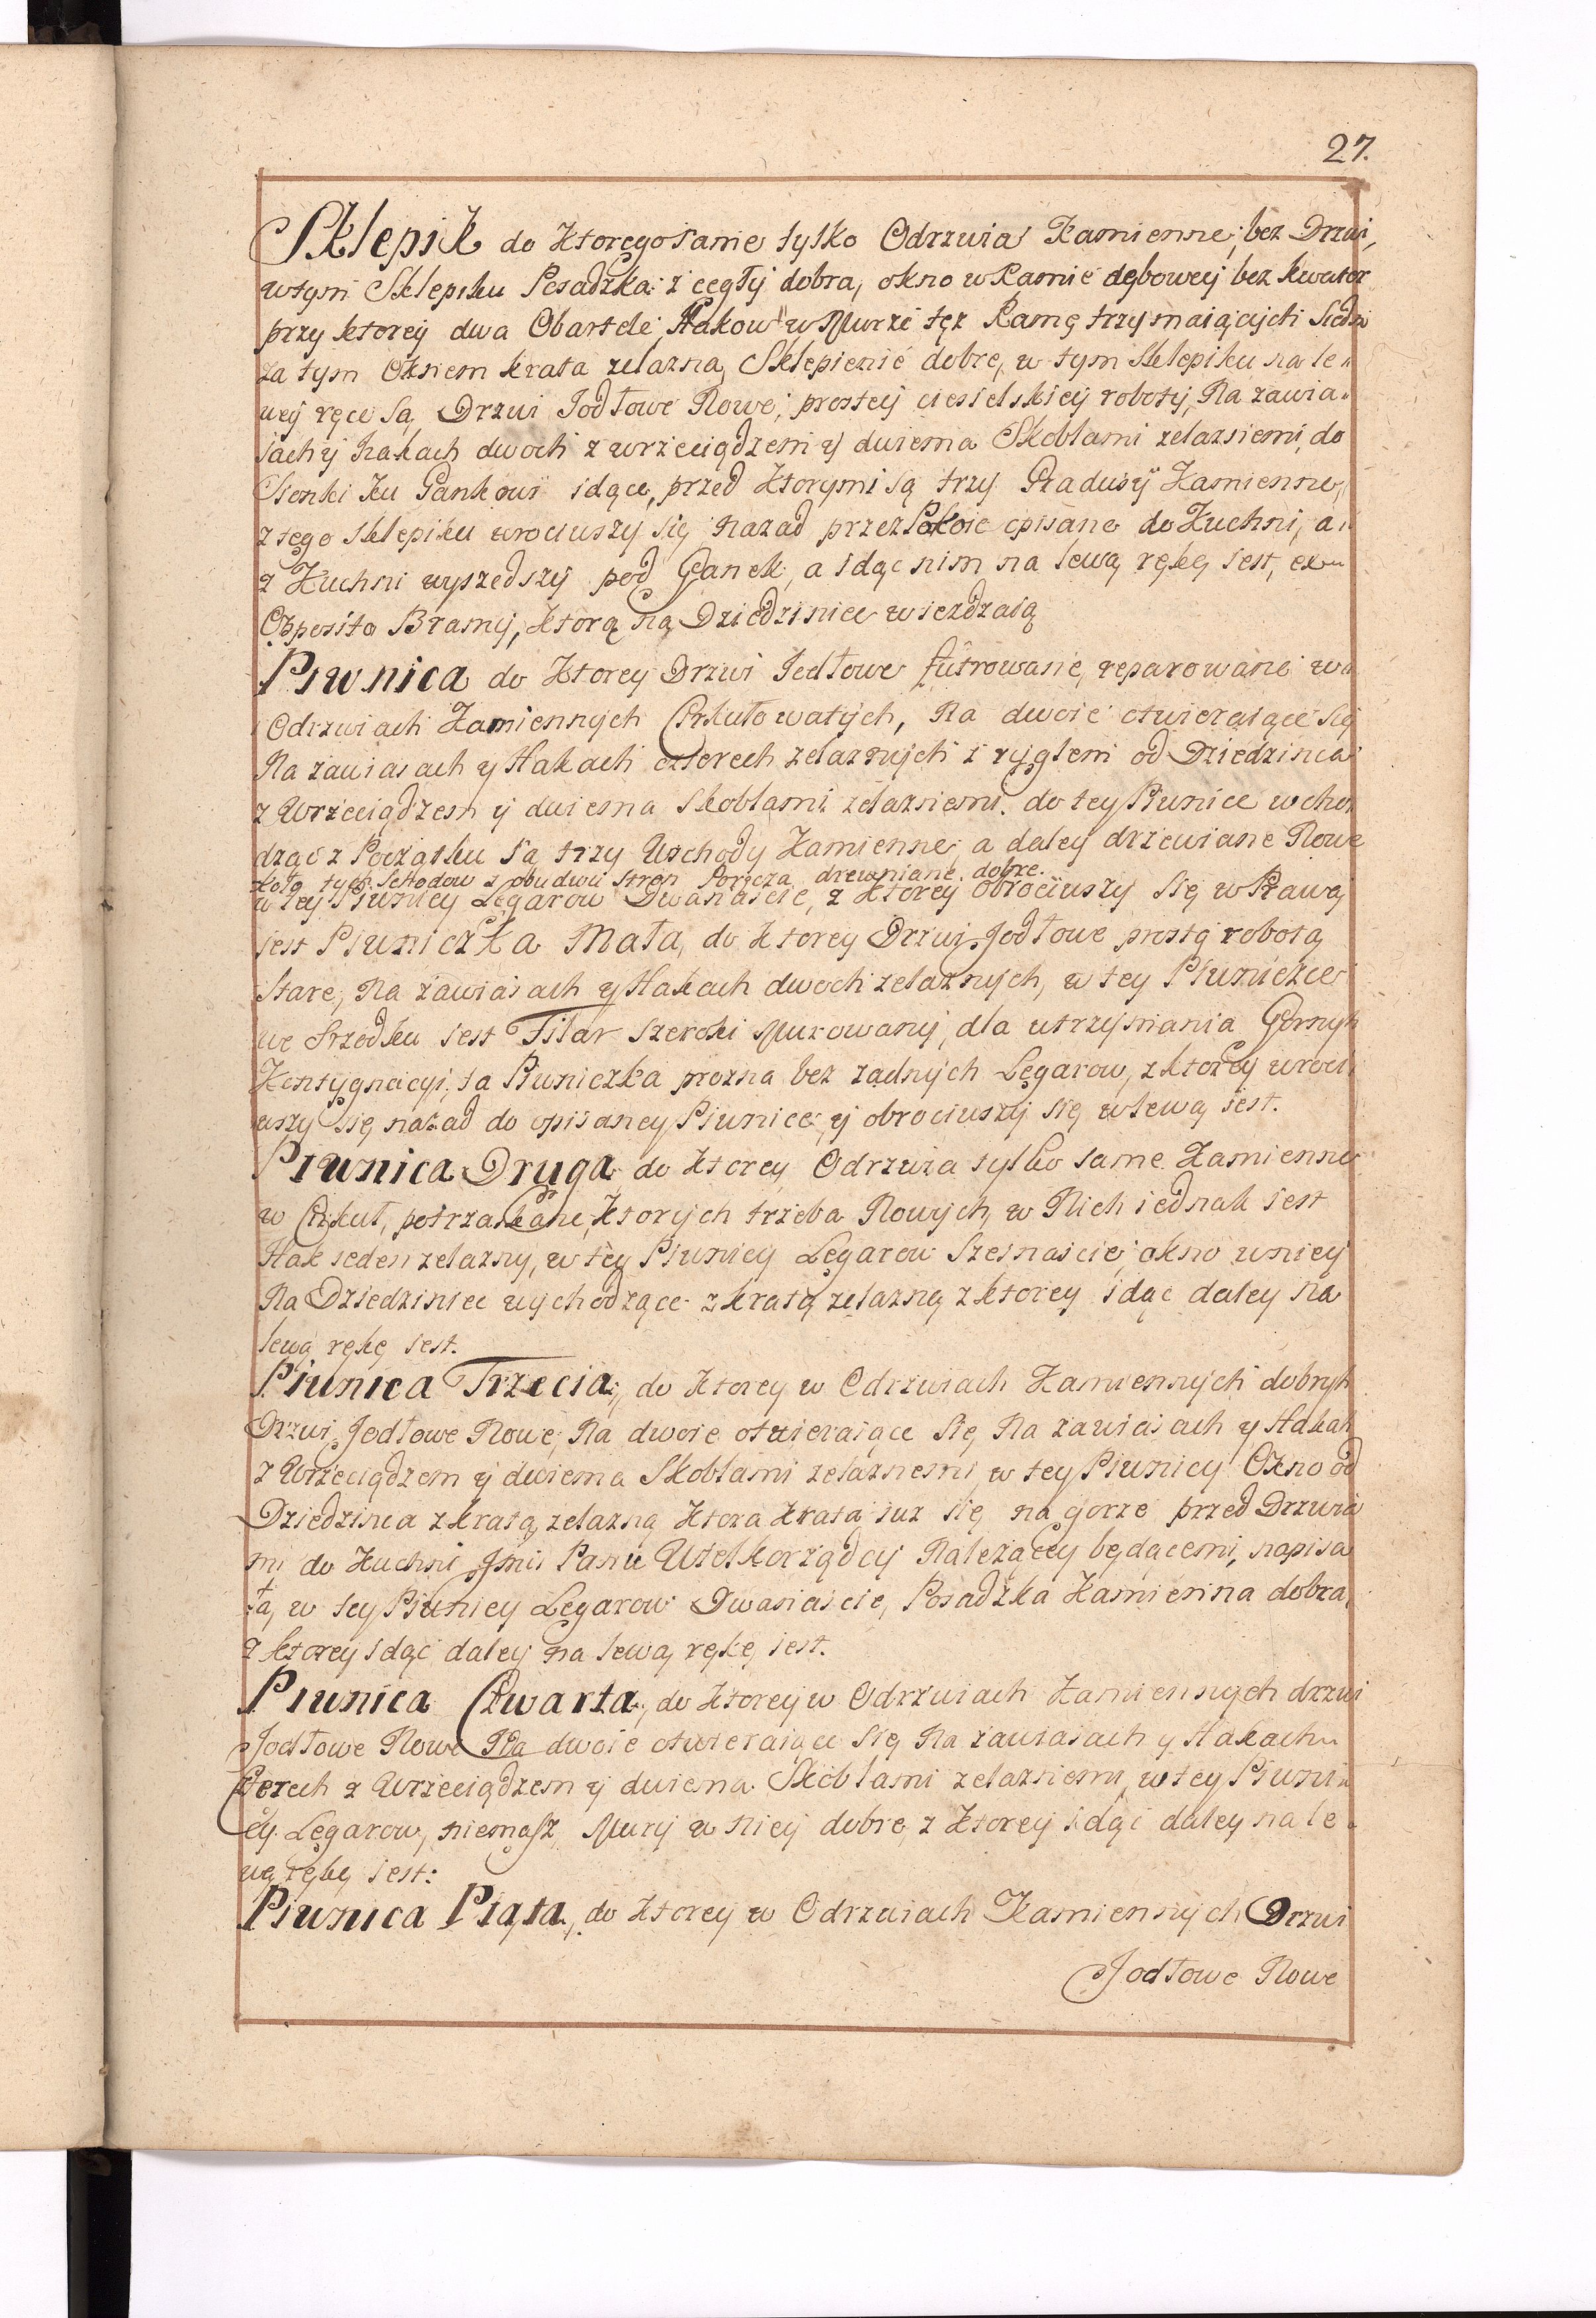 27.
Sklepik do ktorego same tylko Odrzwia Kamienne, bez Drzwi,
wtym Sklepiku Posadzka z cegły dobra, okno w Ramie dębowey bez kwater
przy ktorey dwa Obartele, Hakow w Murze tęż Ramę trzymaiących Siedm
za tym Oknem krata zelazna, Sklepienie dobre, w tym Sklepiku na le„
wey ręce są Drzwi Jodłowe Nowe, prostey ciesielskiey roboty, Na zawia„
sach y hakach dwoch z wrzeciądzem y dwiema Skoblami zelaznemi, do
Sionki ku Gankowi idące, przed ktorymi są trzy Gradusy Kamienne,
z tego sklepiku wrociwszy się nazad przez Pokoie opisane do Kuchni, a„
z Kuchni wyszedszy pod Ganek, a idąc nim na lewą rękę iest, ex„
Opposito Bramy, ktorą na Dziedziniec wiezdzaią
Piwnica do ktorey Drzwi Jodłowe futrowane, reparowane w„
Odrzwiach Kamiennych Cyrkułowatych, Na dwoie otwieraiące się
Na zawiasach y Hakach czterech zelaznych z ryglem od Dziedzinca
z Wrzeciądzem y dwiema Skoblami zelaznemi. do tey Piwnice wcho„
dząc z Początku są trzy Wschody Kamienne, a daley drzewiane Nowe
koło tych Schodow z obudwu stron Poręcza drewniane dobre.
w tey Piwnicy Legarow Dwanascie, z ktorey obrociwszy się w Prawą
jest Piwniczka Mała, do ktorey Drzwi Jodłowe prostą robotą
stare, Na zawiasach y Hakach dwoch zelaznych, w tey Piwniczce
we Srzodku iest Filar szeroki Murowany, dla utrzymania Gornych
Kontygnacyi, ta Piwniczka prozna bez zadnych Legarow, z ktorey wroci„
wszy się nazad do opisaney Piwnice, y obrociwszy się w lewą iest.
Piwnica Druga do ktorey Odrzwia tylko same Kamienne
w Cyrkuł, potrzaskane, ktorych trzeba Nowych, w Nich iednak iest
Hak ieden zelazny, w tey Piwnicy Legarow Szesnascie, okno w niey
Na Dziedziniec wychodzące z kratą zelazną z ktorey idąc daley na
lewą rękę iest.
Piwnica Trzecia, do ktorey w Odrzwiach Kamiennych dobrych
Drzwi Jodłowe Nowe, Na dwoie otwieraiące się, Na zawiasach y Hakach
z Wrzeciądzem y dwiema Skoblami zelaznemi, w tey Piwnicy Okno od
Dziedzinca z kratą zelazną ktora krata iuz się na gorze przed Drzwia
mi do Kuchni Jmci Panu Wielkorządcy Nalezącey będącemi, napisa
ła, w tey Piwnicy Legarow Dwanascie, Posadzka Kamienna dobra,
z ktorey idąc daley na lewą rękę iest.
Piwnica Czwarta, do ktorey w Odrzwiach Kamiennych drzwi
Jodłowe Nowe Na dwoie otwieraiące się Na zawiasach y Hakach„
Czterech z Wrzeciądzem y dwiema Skoblami zelaznemi, w tey Piwni„
cy Legarow, niemasz Mury w niey dobre, z ktorey idąc daley na le„
wą rękę iest:
Piwnica Piąta, do ktorey w Odrzwiach Kamiennych Drzwi
Jodłowe Nowe